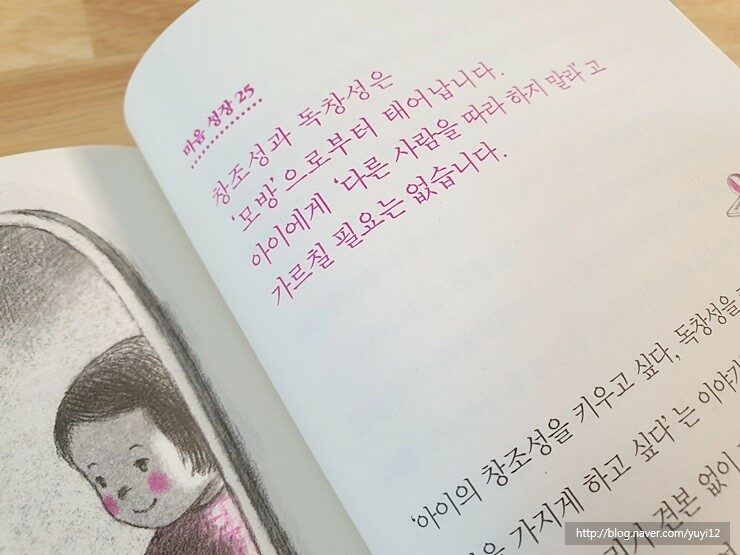 마음 성장 25
창조성과 독창성은
'모방'으로부터 태어납니다.
아이에게 '다른 사람을 따라 하지 말라'고
가르칠 필요는 없습니다.
'아이의 창조성을 키우고 싶다, 독창성을
가지게 하고 싶다'는 이야기
견본 없이
http://blog.naver.com/yuyi12